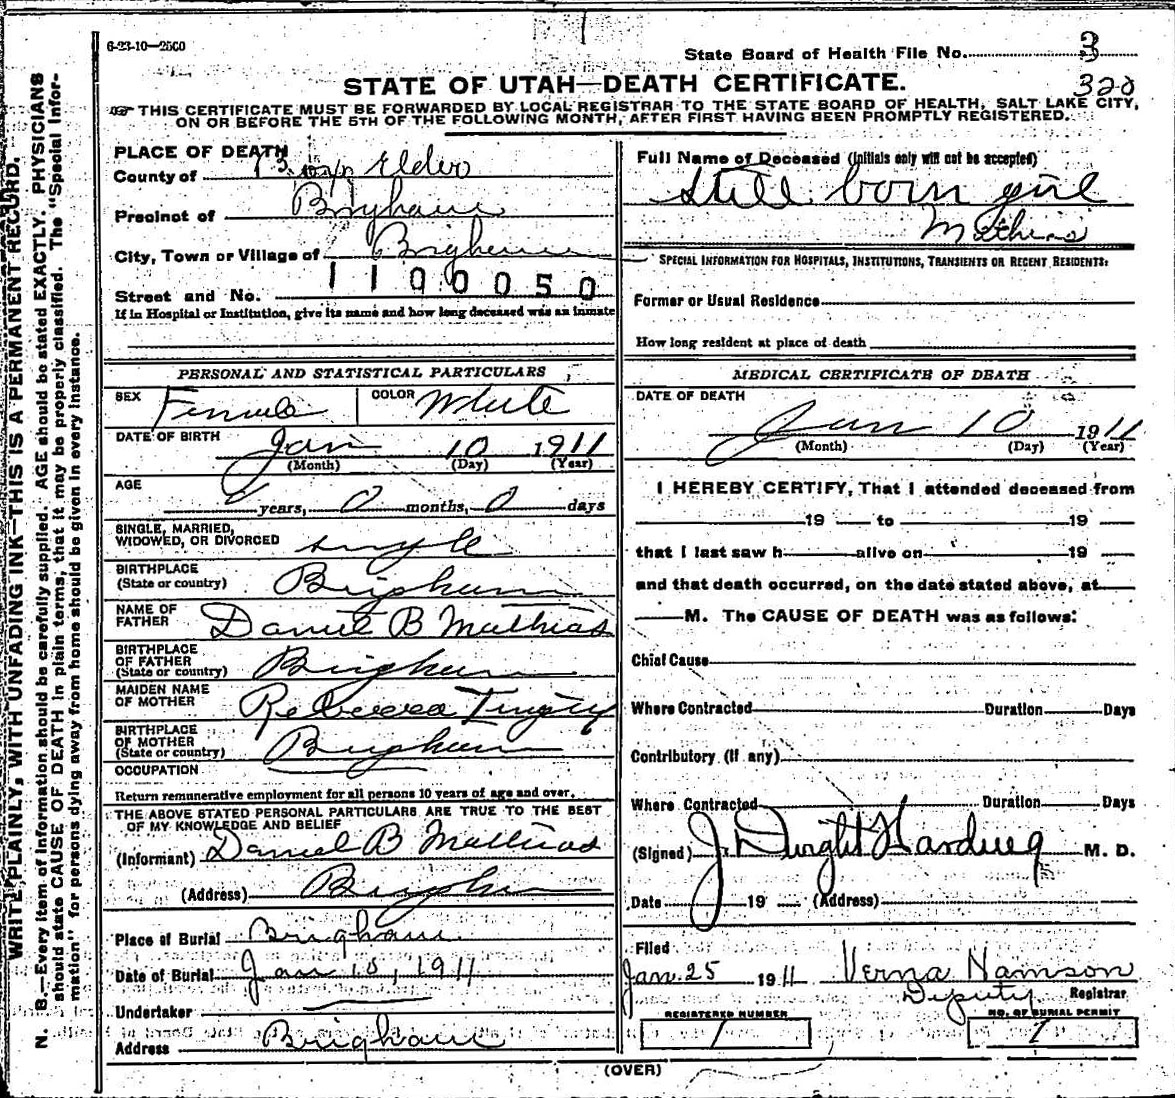 6-23-10—2500
State Board of Health File No. 3
STATE OF UTAH—DEATH CERTIFICATE. 320
THIS CERTIFICATE MUST BE FORWARDED BY LOCAL REGISTRAR TO THE STATE BOARD OF HEALTH, SALT LAKE CITY,
ON OR BEFORE THE 5TH OF THE FOLLOWING MONTH, AFTER FIRST HAVING BEEN PROMPTLY REGISTERED.
PLACE OF DEATH
County of Box Elder
Precinct of Brigham
City, Town or Village of Brigham
1100050
Street and No.
If in Hospital or Institution, give its name and how long deceased was an inmate
PERSONAL AND STATISTICAL PARTICULARS
SEX Female COLOR White
DATE OF BIRTH Jan 10 1911
(Month) (Day) (Year)
AGE
0 years, 0 months, 0 days
SINGLE, MARRIED,
WIDOWED, OR DIVORCED single
BIRTHPLACE
(State or country) Brigham
NAME OF
FATHER Daniel B Mathias
BIRTHPLACE
OF FATHER
(State or country) Brigham
MAIDEN NAME
OF MOTHER Rebecca Tingey
BIRTHPLACE
OF MOTHER
(State or country) Brigham
OCCUPATION
Return remunerative employment for all persons 10 years of age and over.
THE ABOVE STATED PERSONAL PARTICULARS ARE TRUE TO THE BEST
OF MY KNOWLEDGE AND BELIEF
(Informant) Daniel B Mathias
(Address) Brigham
Place of Burial Brigham
Date of Burial Jan 10, 1911
Undertaker
Address Brigham
Full Name of Deceased (Initials only will not be accepted)
Still born girl
Mathias
SPECIAL INFORMATION FOR HOSPITALS, INSTITUTIONS, TRANSIENTS OR RECENT RESIDENTS:
Former or Usual Residence
How long resident at place of death
MEDICAL CERTIFICATE OF DEATH
DATE OF DEATH
Jan 10 1911
(Month) (Day) (Year)
I HEREBY CERTIFY, That I attended deceased from
19 to 19
that I last saw h alive on 19
and that death occurred, on the date stated above, at
M. The CAUSE OF DEATH was as follows:
Chief Cause
Where Contracted Duration Days
Contributory (if any)
Where Contracted Duration Days
(Signed) J. Dwight Harding M. D.
Date 19 (Address)
Filed
Jan. 25 1911 Verna Hamson
Deputy Registrar
REGISTERED NUMBER
1
NO. OF BURIAL PERMIT
1
(OVER)
WRITE PLAINLY, WITH UNFADING INK—THIS IS A PERMANENT RECORD.
N. B.—Every item of information should be carefully supplied. AGE should be stated EXACTLY. PHYSICIANS
should state CAUSE OF DEATH in plain terms, that it may be properly classified. The "Special Infor-
mation" for persons dying away from home should be given in every instance.